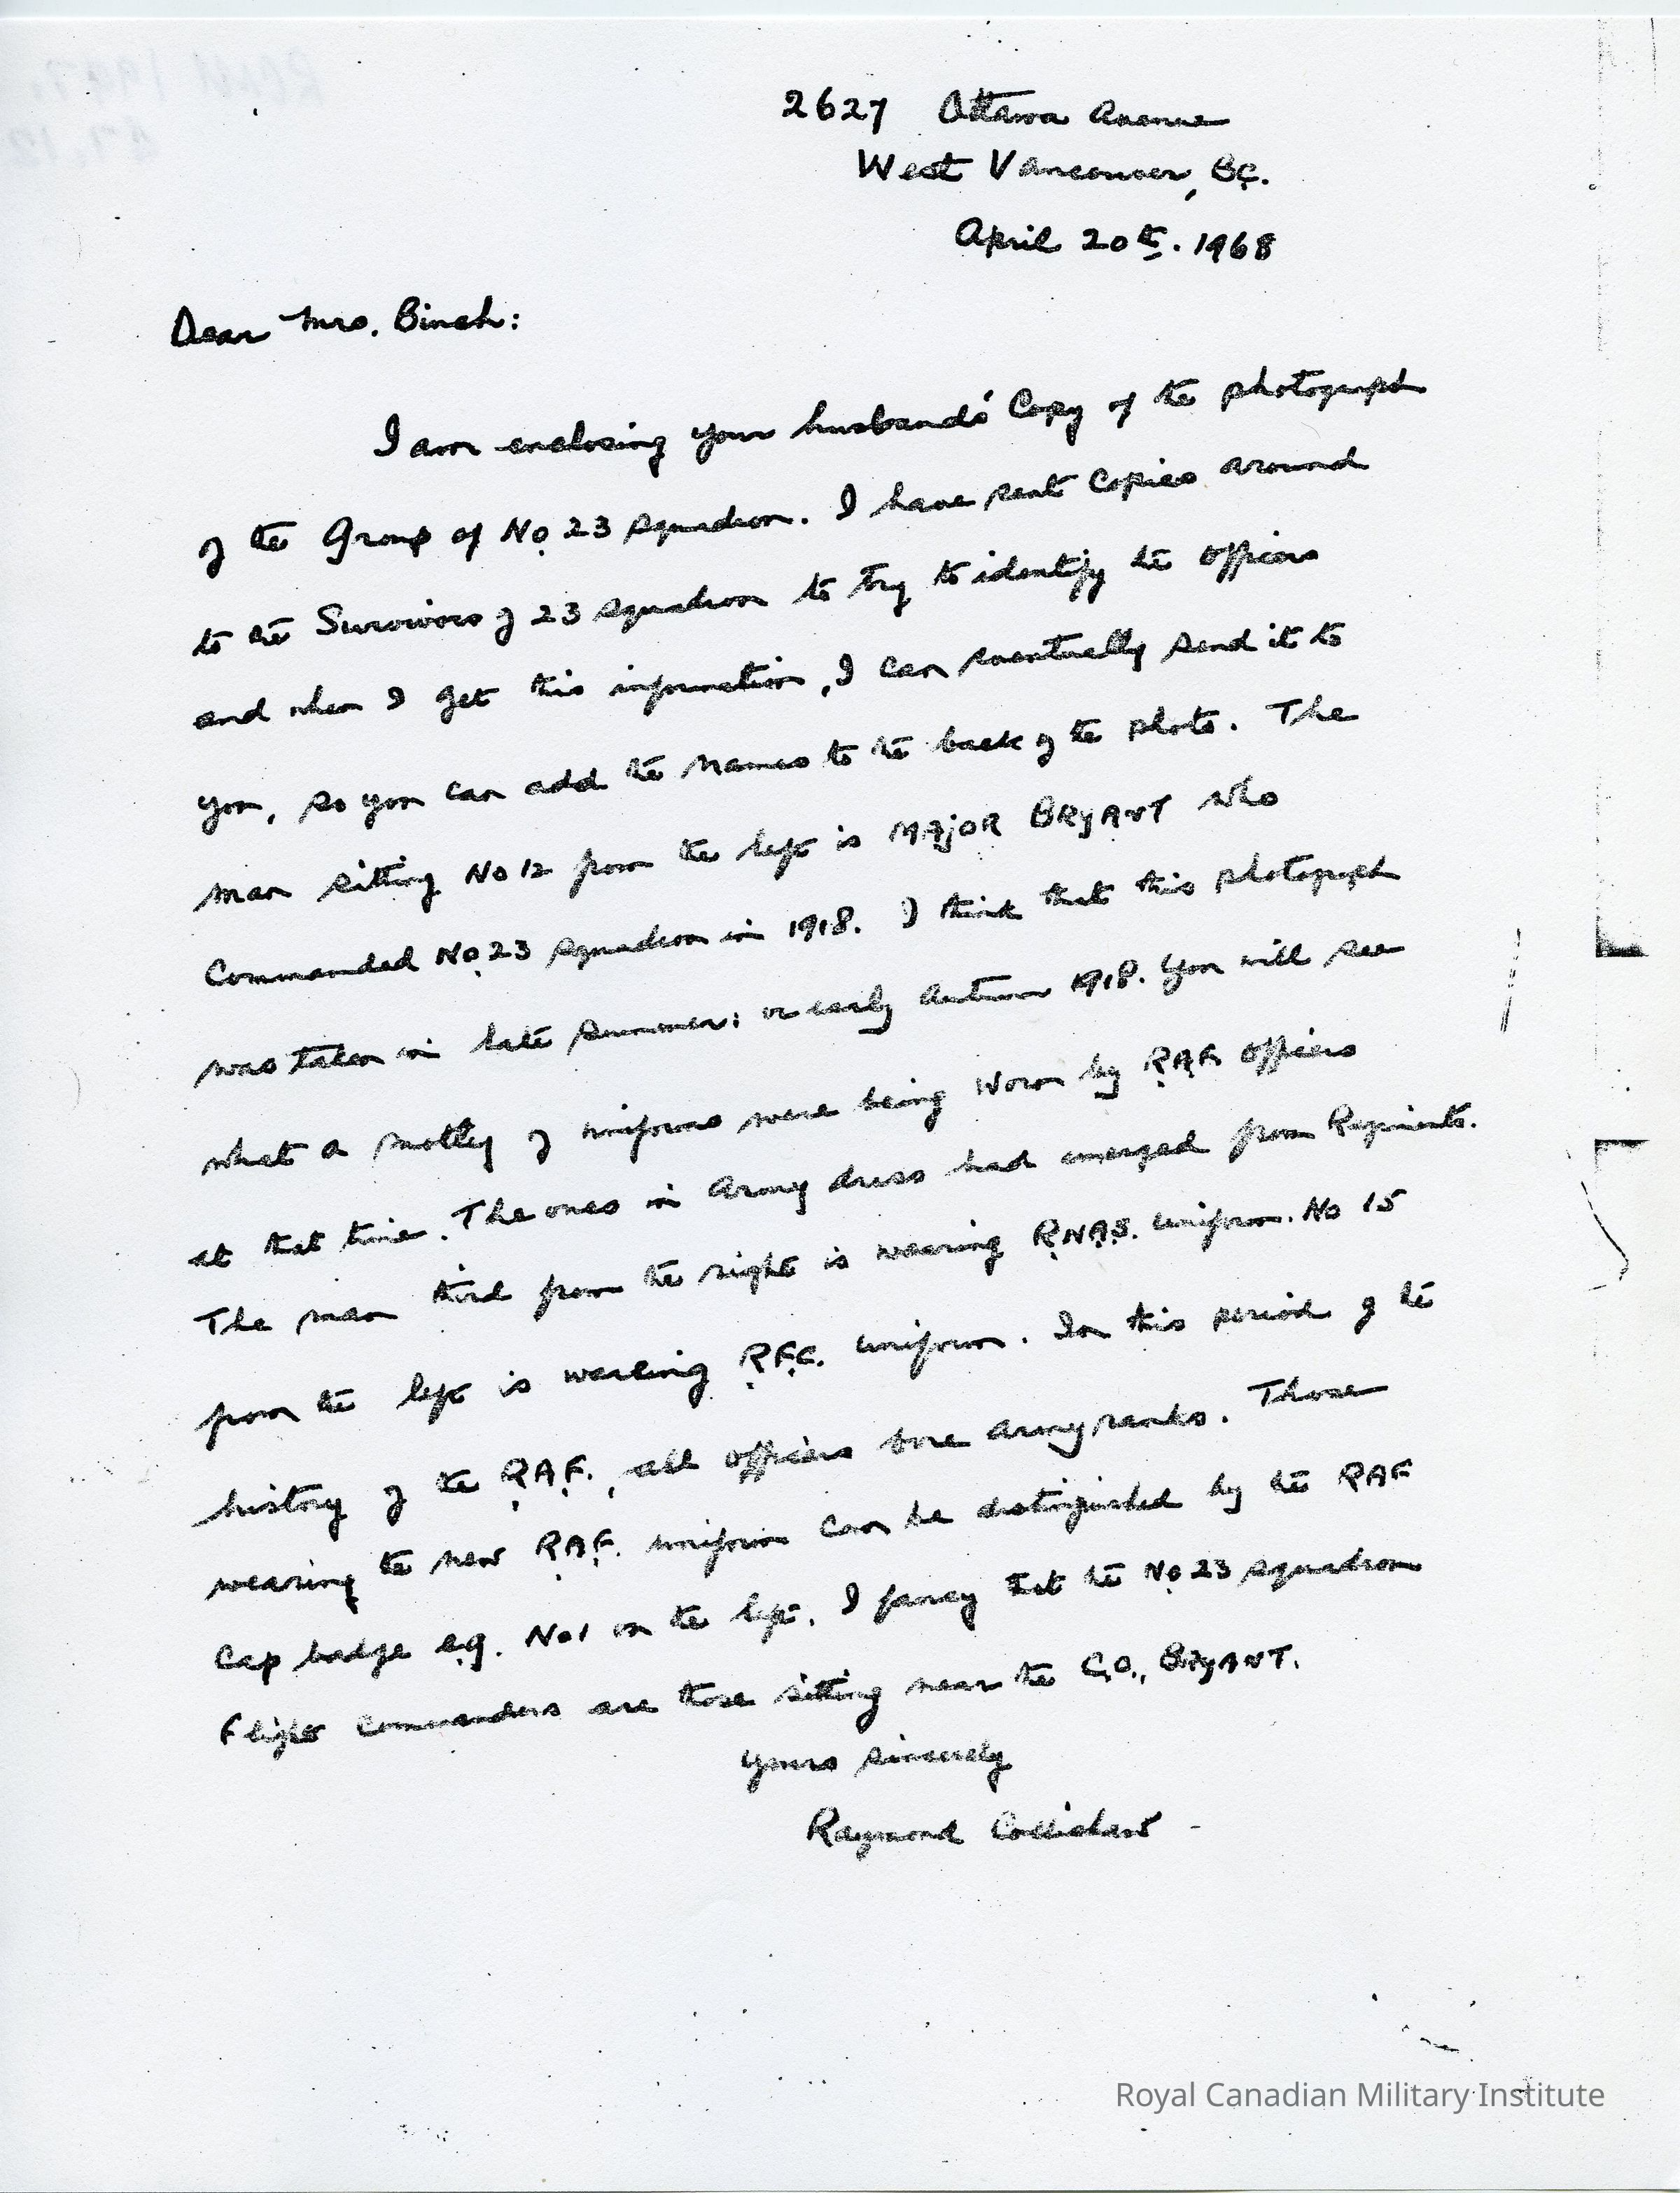 2627 Ottawa Avenue
West Vancouver, B.C.
April 20th. 1968
Dear Mrs. Binch:
I am enclosing your husbands' Copy of the photograph
of the Group of No 23 Squadron. I have sent Copies around
to the Survivors of 23 Squadron to try to identify the officers
and when I get this information, I can eventually send it to
you, so you can add the names to the back of the photo. The
man sitting No 12 from the left is MAJOR BRYANT who
Commanded No 23 Squadron in 1918. I think that this photograph
was taken in late Summer; or early Autumn 1918. You will see
what a motley of uniforms were being worn by R.A.F. officers
at that time. The ones in Army dress had emerged from Regiments.
The man third from the right is wearing R.N.A.S. Uniform. No 15
from the left is wearing R.F.C. Uniform. In this period of the
history of the R.A.F., all officers bore Army ranks. Those
wearing the new R.A.F. uniform can be distinguished by the RAF
Cap badge e.g. No 1 on the left. I fancy that the No 23 Squadron
Flight Commanders are those sitting near the C.O., BRYANT.
Yours sincerely
Raymond Collishaw
Royal Canadian Military Institute